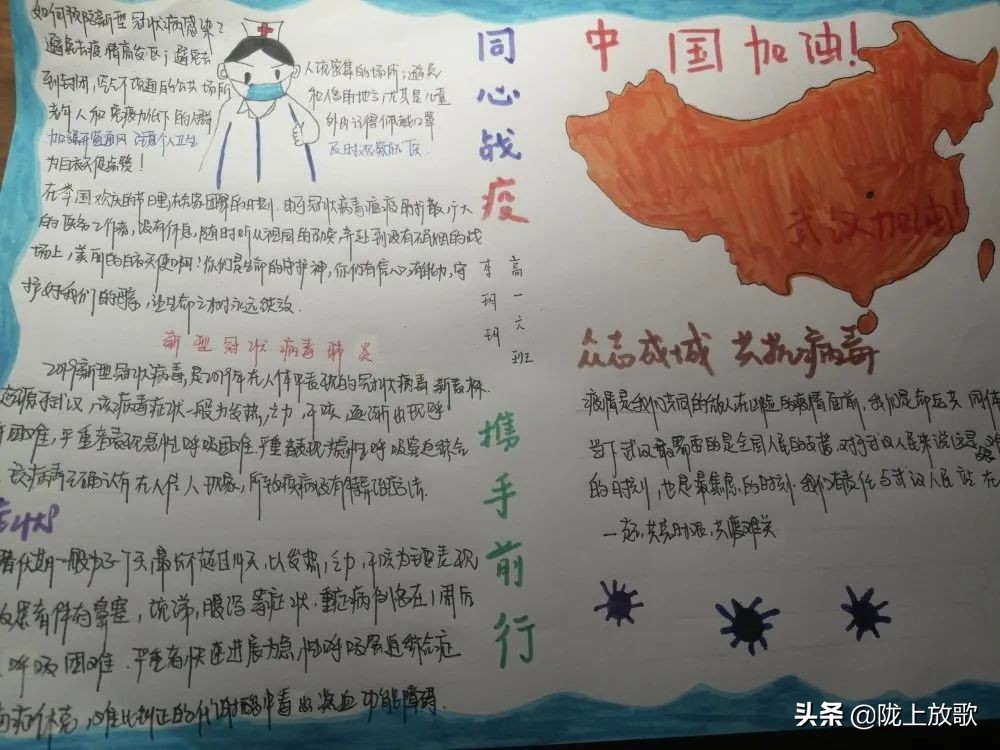 如何预防新型冠状病感染?
避免去疫情高发区;避免去
到封闭,空气不流通的公共场所
人流密集的场所;避免
和人多的地方,尤其是儿童
老年人和免疫力低下的人群
外出记得佩戴口罩
加强开窗通风 注意个人卫生
及时观察就医
为白衣天使点赞!
在举国欢庆的节日里,在家团聚的时刻.由于冠状病毒瘟疫的扩散,广大
的医务工作者,没有休息,随时听从祖国的召唤,奔赴到没有硝烟的战
场上,美丽的白衣天使啊!你们是生命的守护神,你们有信心,有能力,守
护好我们的,让生命之树永远绿.
新型冠状病毒肺炎
2019新型冠状病毒,是2019年在人体中发现的冠状病毒新毒株.
武汉,该病毒症状一般为发热,乏力,干咳,逐渐出现呼
困难,严重者表现急性呼吸困难.严重者表现为急性呼吸窘迫综合
该病毒已确认有在人传人现象,所致疾病没有特异治疗方法.
潜伏期一般为3-7天,最长不超过14天,以发热,乏力,干咳为主要表现
患者伴有鼻塞,流涕,腹泻等症状,重症病例多在1周后
呼吸困难.严重者快速进展为急性呼吸窘迫综合症
休克,难以纠正的代谢性酸中毒出凝血功能障碍.
同心战疫
高一六班
李玥玥
携手前行
中国加油!
武汉加油!
众志成城 共抗病毒
疫情是我们共同的敌人在凶险的疫情面前,我们是命运共同体
当下武汉最需要的是全国人民的支援.对于武汉人民来说这是艰难
的时刻,也是最焦虑的时刻.我们有责任与武汉人民站在
一起,共克时艰,共度难关
头条 @陇上放歌